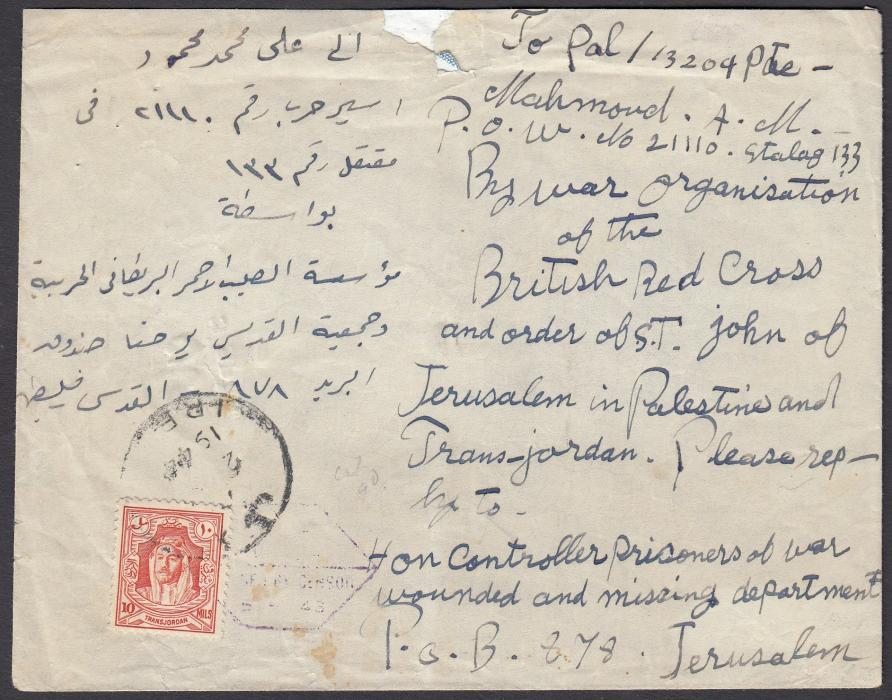 To Pal/13204 Pte -
Mahmoud. A. M. -
P. O. W. No 21110. Stalag 133
By war organisation
of the
British Red Cross
and order of S.T. john of
Jerusalem in Palestine and
Trans-jordan. Please rep-
ly to -
Hon Controller prisoners of war
wounded and missing department
P. o. B. 878. Jerusalem
الى على محمد محمود
اسير حرب رقم ٢١١١٠ فى
معتقل رقم ١٣٣
بواسطة
مؤسسة الصليب الاحمر البريطانى الحربية
وجمعية القدس يوحنا صندوق
البريد ٨٧٨ - القدس فلسطين
IRB
19
١٠
10 MILS
TRANSJORDAN
CENSOR